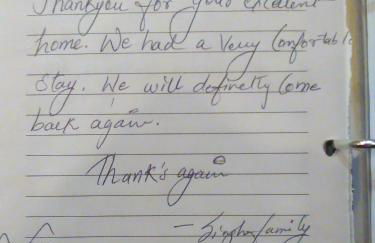 Thankyou for your excelent
home. We had a Very Comfortable
Stay. We will definetly Come
back again.
Thank's again
- Singha family